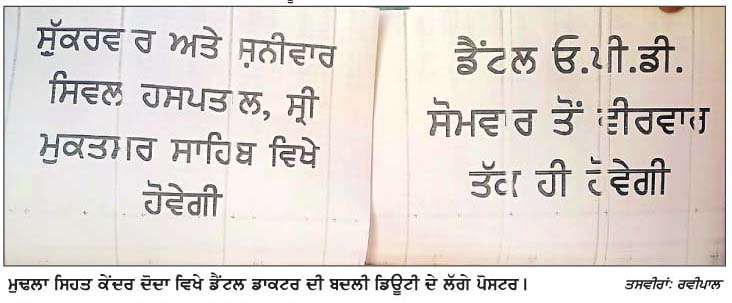 ਸ਼ੁੱਕਰਵਾਰ ਅਤੇ ਸ਼ਨੀਵਾਰ
ਸਿਵਲ ਹਸਪਤਾਲ, ਸ੍ਰੀ
ਮੁਕਤਸਰ ਸਾਹਿਬ ਵਿਖੇ
ਹੋਵੇਗੀ
ਡੈਂਟਲ ਓ.ਪੀ.ਡੀ.
ਸੋਮਵਾਰ ਤੋਂ ਵੀਰਵਾਰ
ਤੱਕ ਹੀ ਹੋਵੇਗੀ
ਮੁਢਲਾ ਸਿਹਤ ਕੇਂਦਰ ਦੋਦਾ ਵਿਖੇ ਡੈਂਟਲ ਡਾਕਟਰ ਦੀ ਬਦਲੀ ਡਿਊਟੀ ਦੇ ਲੱਗੇ ਪੋਸਟਰ। ਤਸਵੀਰਾਂ: ਰਵੀਪਾਲ